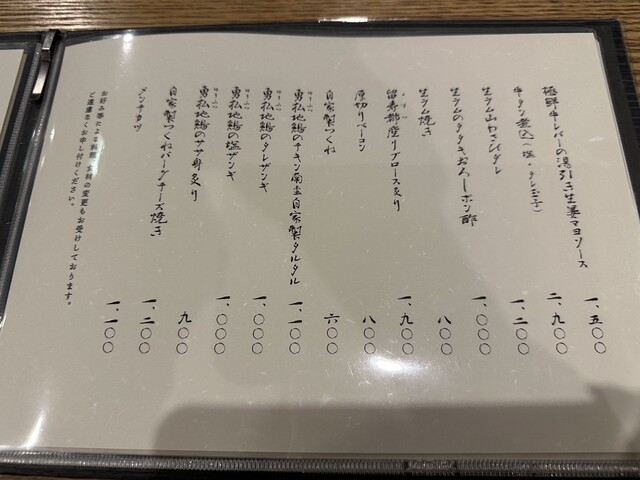 極鮮牛レバーの湯引き生姜マヨソース 一、五〇〇
牛タン煮込(塩・タレ玉子) 二、九〇〇
生ラム山わさびダレ 一、二〇〇
生ラムのタタキおろしポン酢 一、〇〇〇
生ラム焼き 八〇〇
留寿都産リブロース炙り 一、九〇〇
厚切りベーコン 八〇〇
自家製つくね 六〇〇
勇払地鶏のチキン南蛮自家製タルタル 一、一〇〇
勇払地鶏のタレザンギ 一、〇〇〇
勇払地鶏の塩ザンギ 一、〇〇〇
勇払地鶏のササ身炙り 九〇〇
自家製つくねバーグチーズ焼き 一、二〇〇
メンチカツ 一、一〇〇
お好み等による料理、食材の変更もお受けしております。
ご遠慮なくお申し付けください。